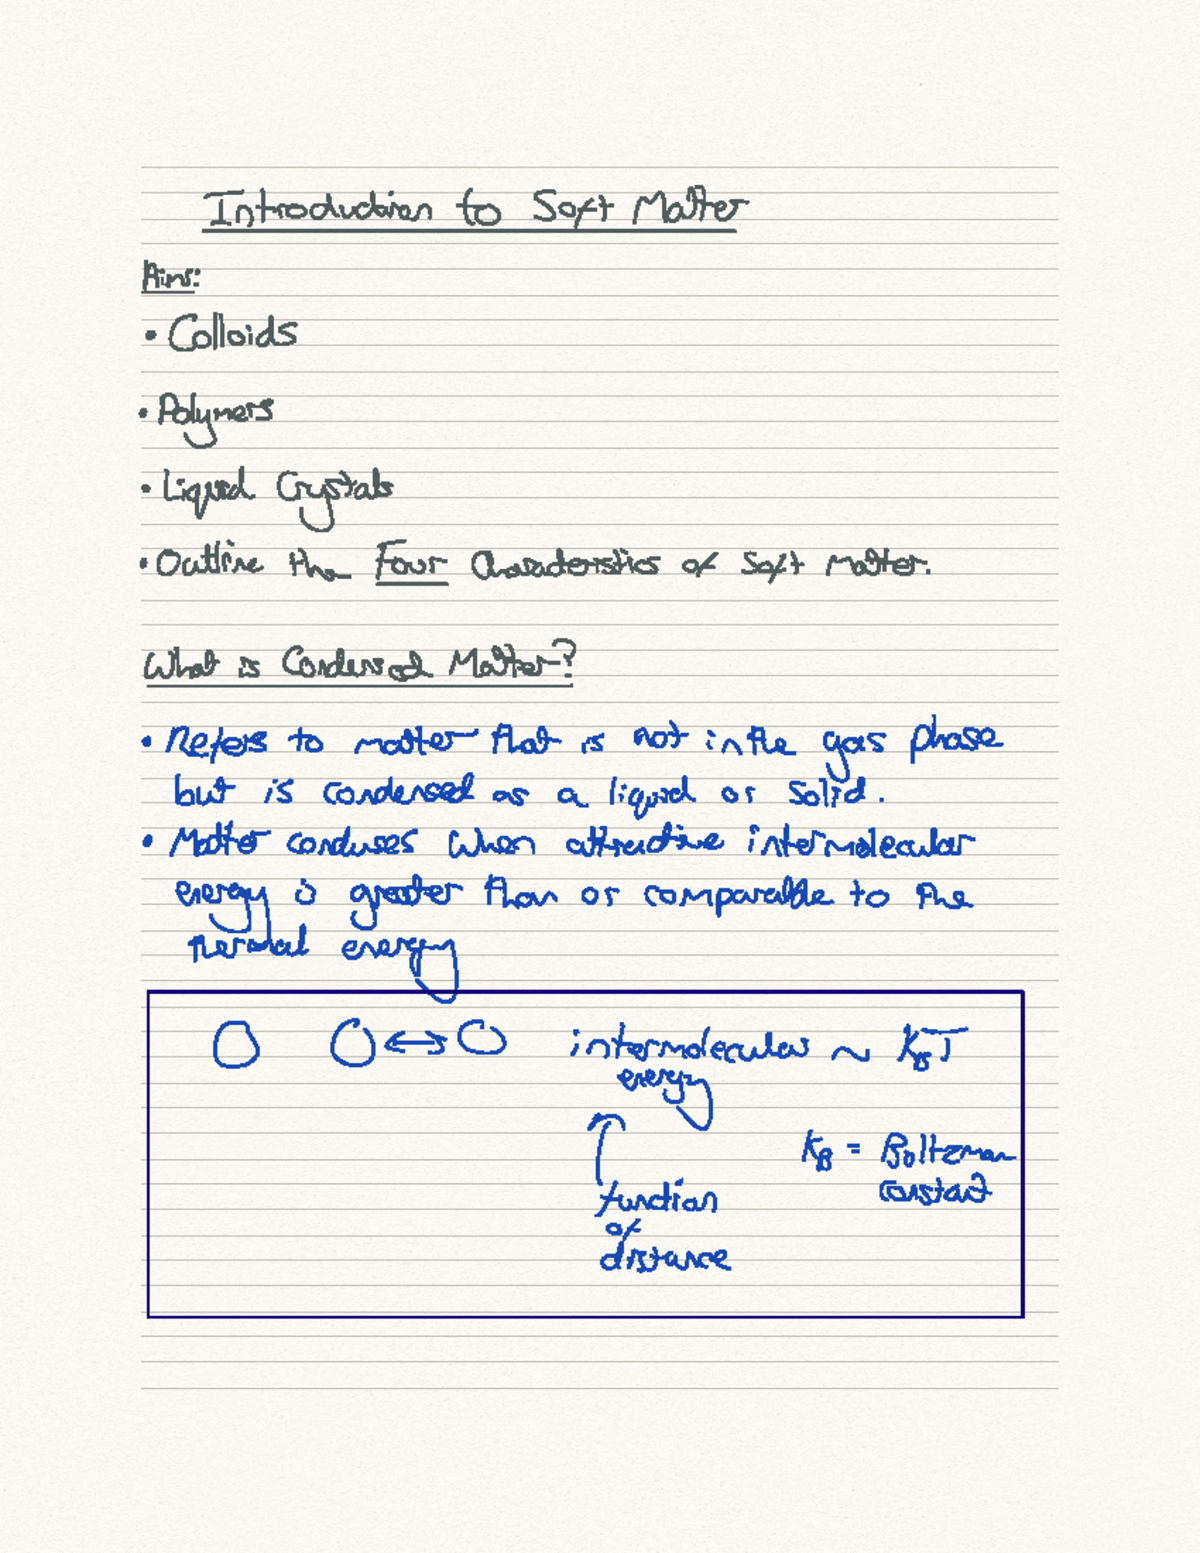 Introduction to Soft Matter
Aims:
• Colloids
• Polymers
• Liquid Crystals
• Outline the Four Characteristics of Soft Matter.
What is Condensed Matter?
• Refers to matter that is not in the gas phase
but is condensed as a liquid or solid.
• Matter conduses when attractive intermolecular
energy is greater than or comparable to the
thermal energy
intermolecular ~ KBT
energy
KB = Boltzman
constant
function
of
distance